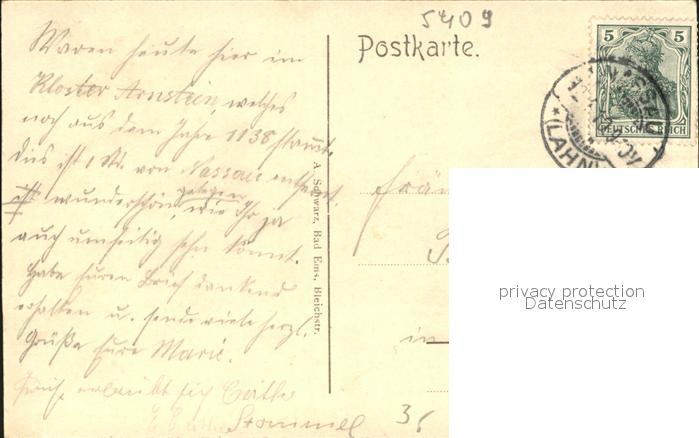 5409
Postkarte.
5 5
DEUTSCHES REICH
(LAHN)
Waren heute hier im
Kloster Arnstein, welches
noch aus dem Jahre 1138 stammt.
Dies ist 1 St. von Nassau entfernt.
gelegen
Ist wunderschön, wie Ihr ja
auch umseitig sehn könnt.
Habe Euren Brief dankend
erhalten u. sende viele herzl.
Grüße Eure Marie.
Gruß erlaubt sich
Stommel
A. Schwarz, Bad Ems, Bleichstr.
in
35
privacy protection
Datenschutz